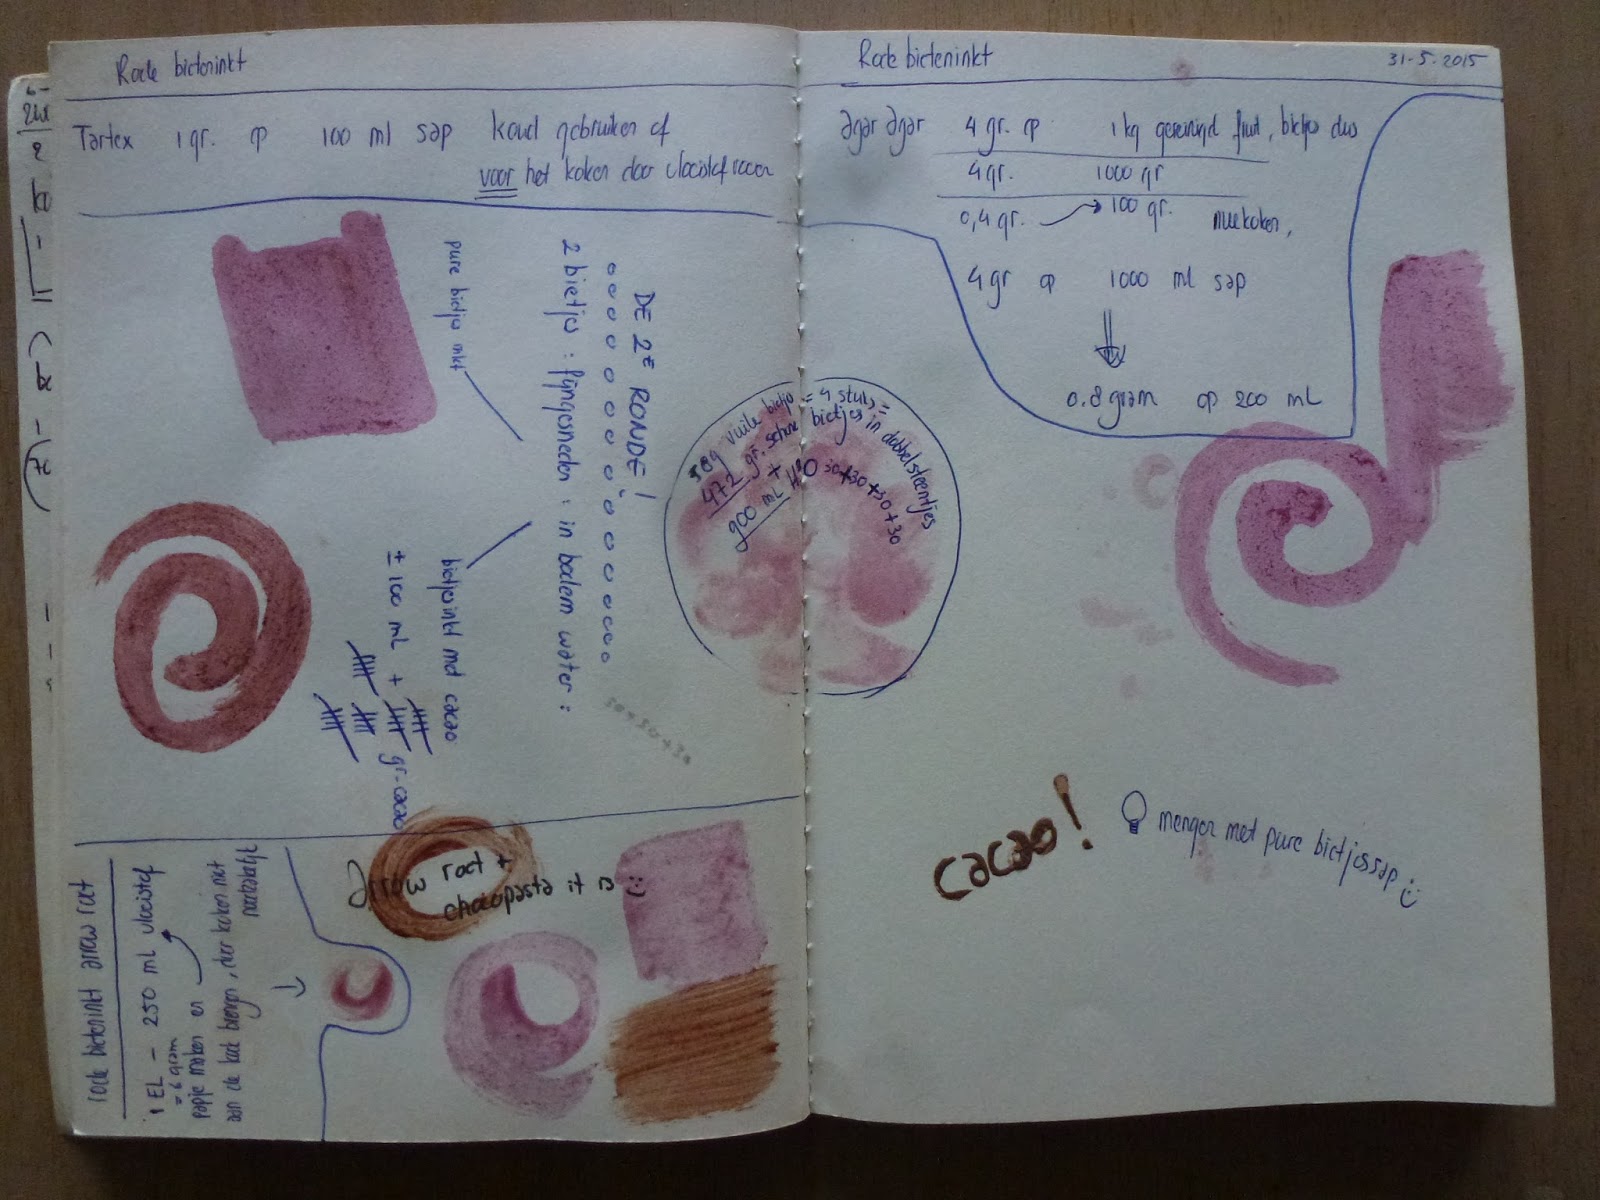 Rode bieteninkt
Tartex 1 gr. op 100 ml sap koud gebruiken of
voor het koken door vloeistof roeren
pure bietjes inkt
DE 2E RONDE!
2 bietjes : fijngesneden : in bodem water :
bietjesinkt met cacao
± 100 mL +
gr. cacao
30+30+30
Arrow root +
chocopasta it is
rode bieteninkt arrow root
1 EL - 250 mL vloeistof
= 6 gram
papje maken en
aan de kook brengen, door koken niet
noodzakelijk
vuile bietjes = 4 stuks =
472 gr. schone bietjes in dobbelsteentjes
+
900 mL H2O 30+30+30+30
Rode bieteninkt
31-5-2015
agar agar 4 gr. op 1 kg gereinigd fruit, bietjes dus
4 gr. 1000 gr
0,4 gr. 100 gr. meekoken,
4 gr op 1000 ml sap
0.8 gram op 200 mL
cacao!
mengen met pure bietjessap